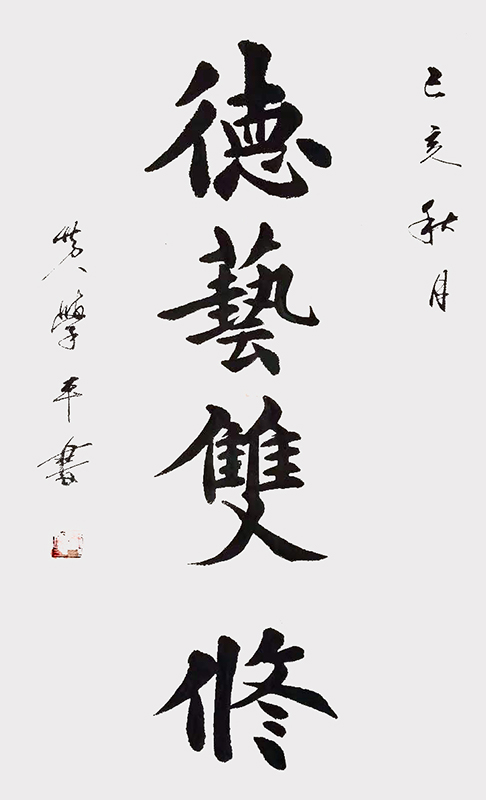 己亥秋月
德藝雙修
黄學平書